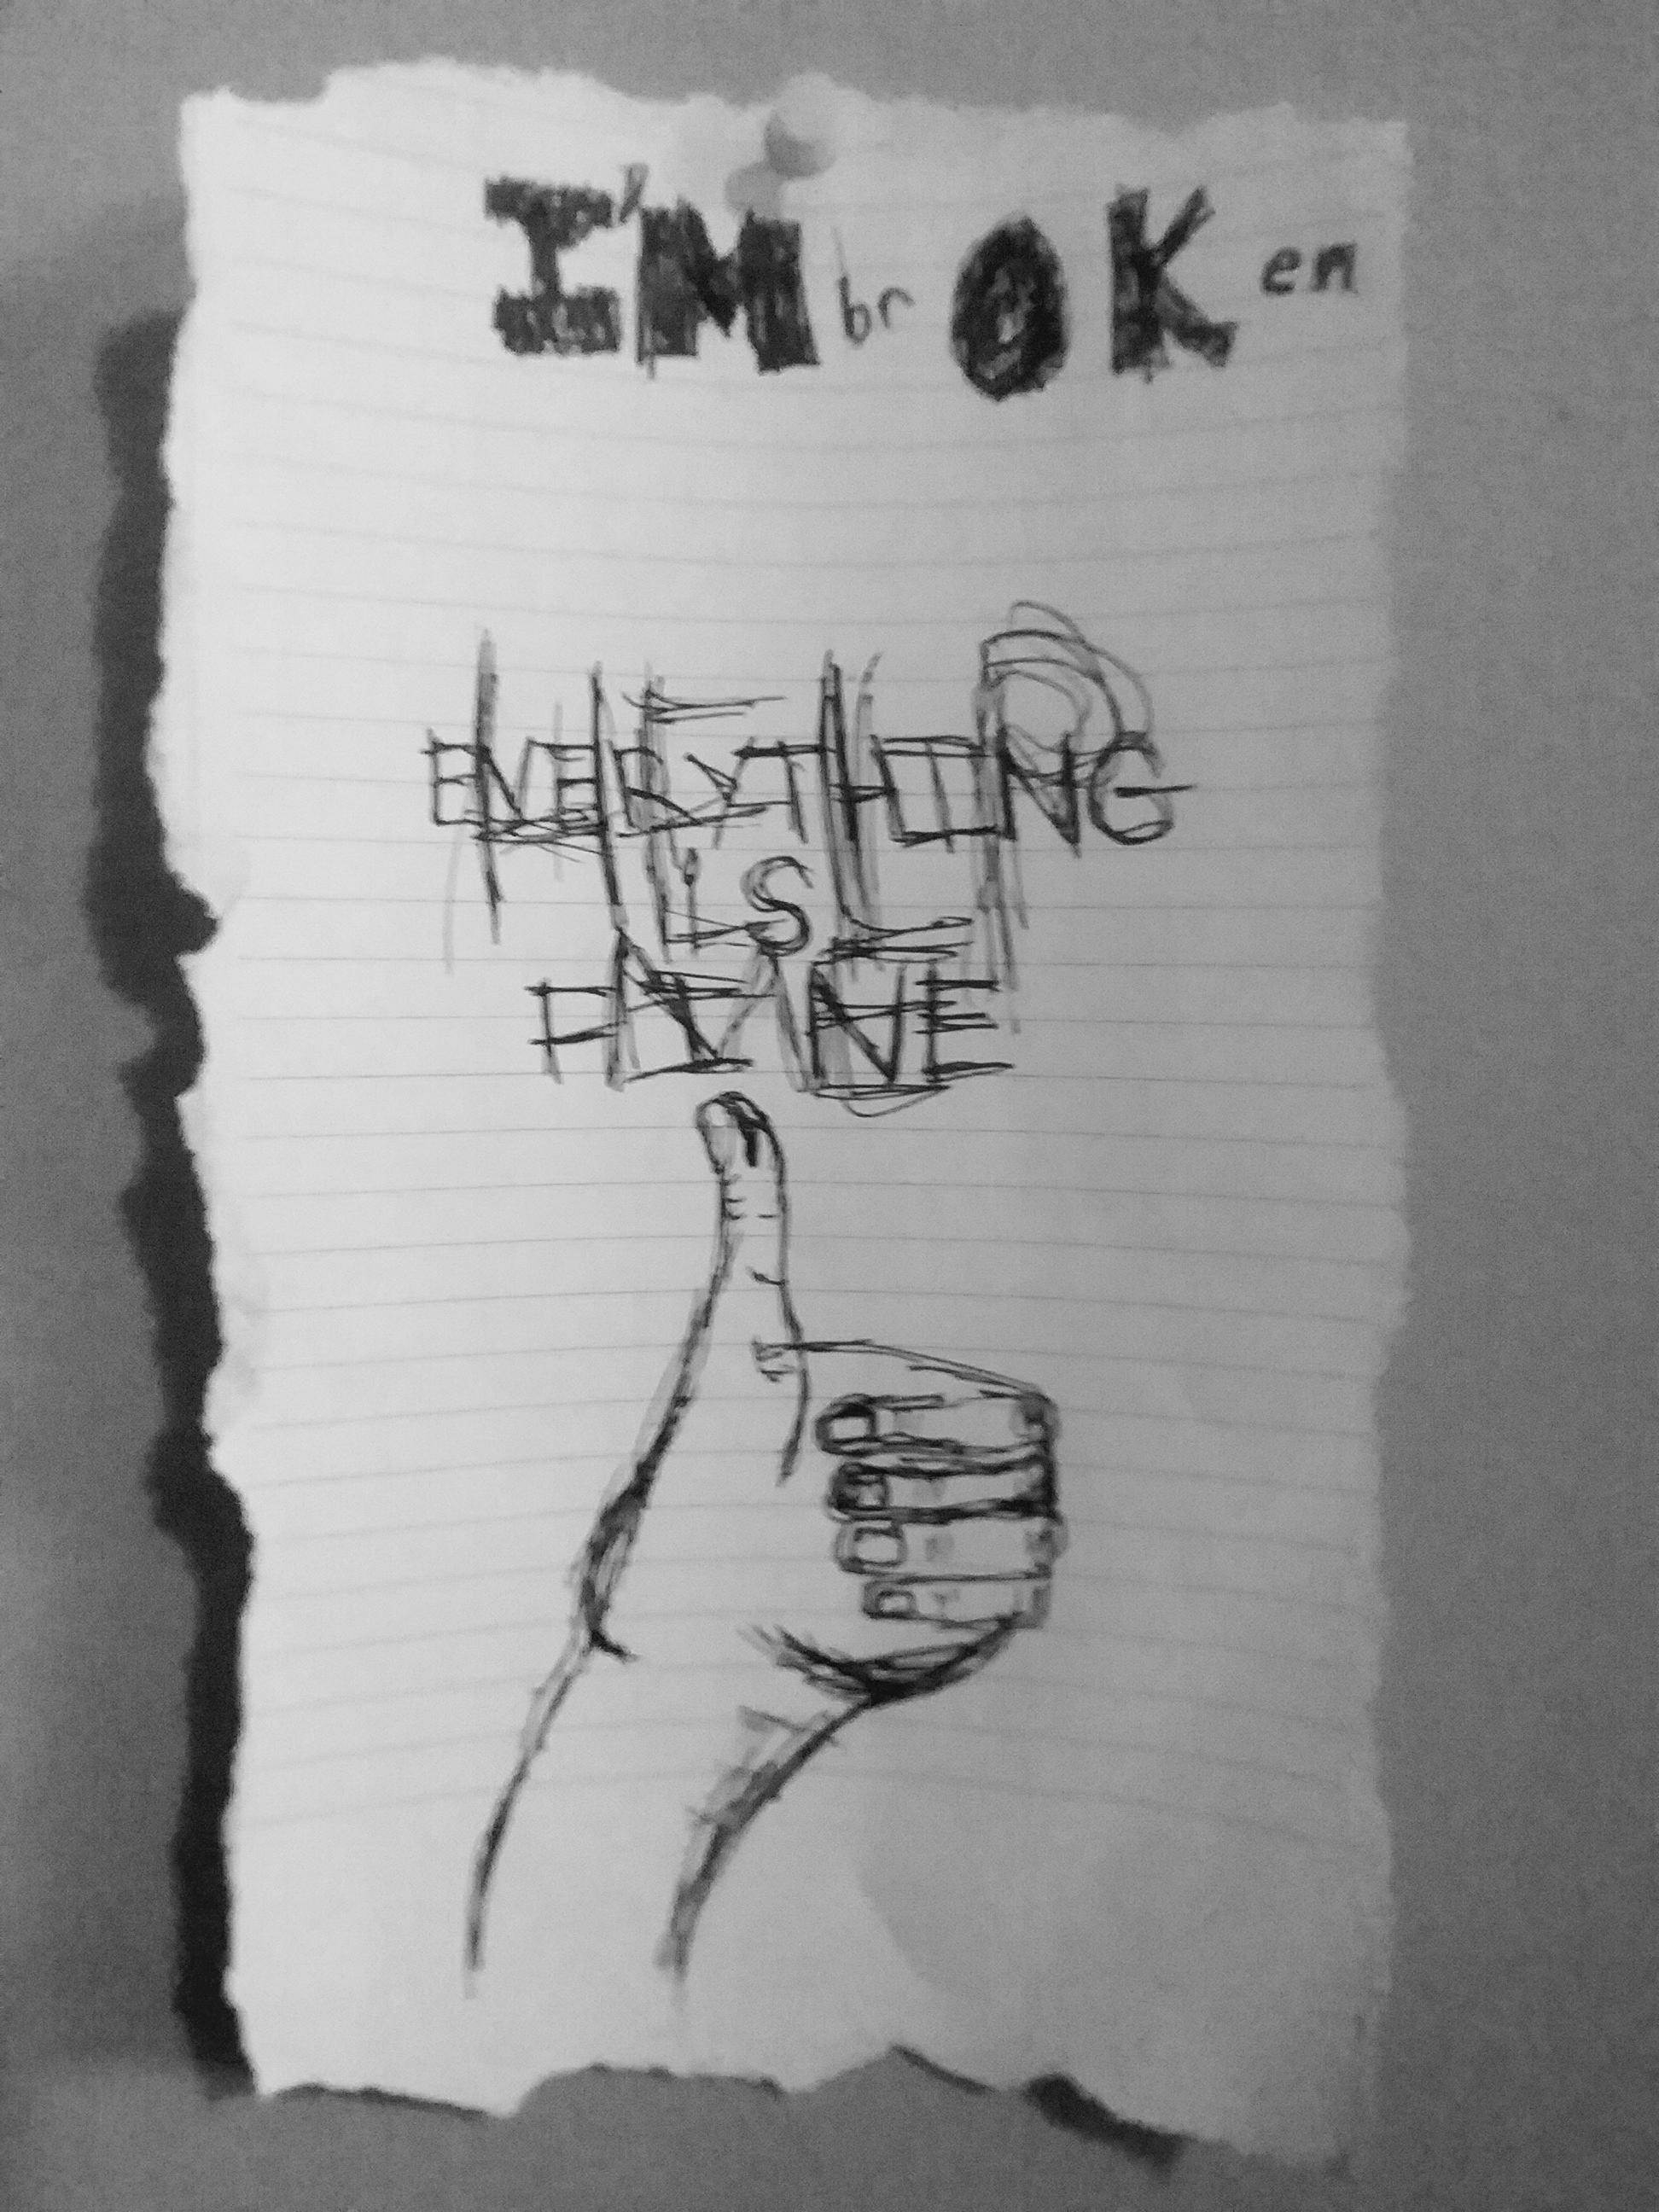 I'M brOKen
HELP
EVERYTHING
iS
ME
FINE